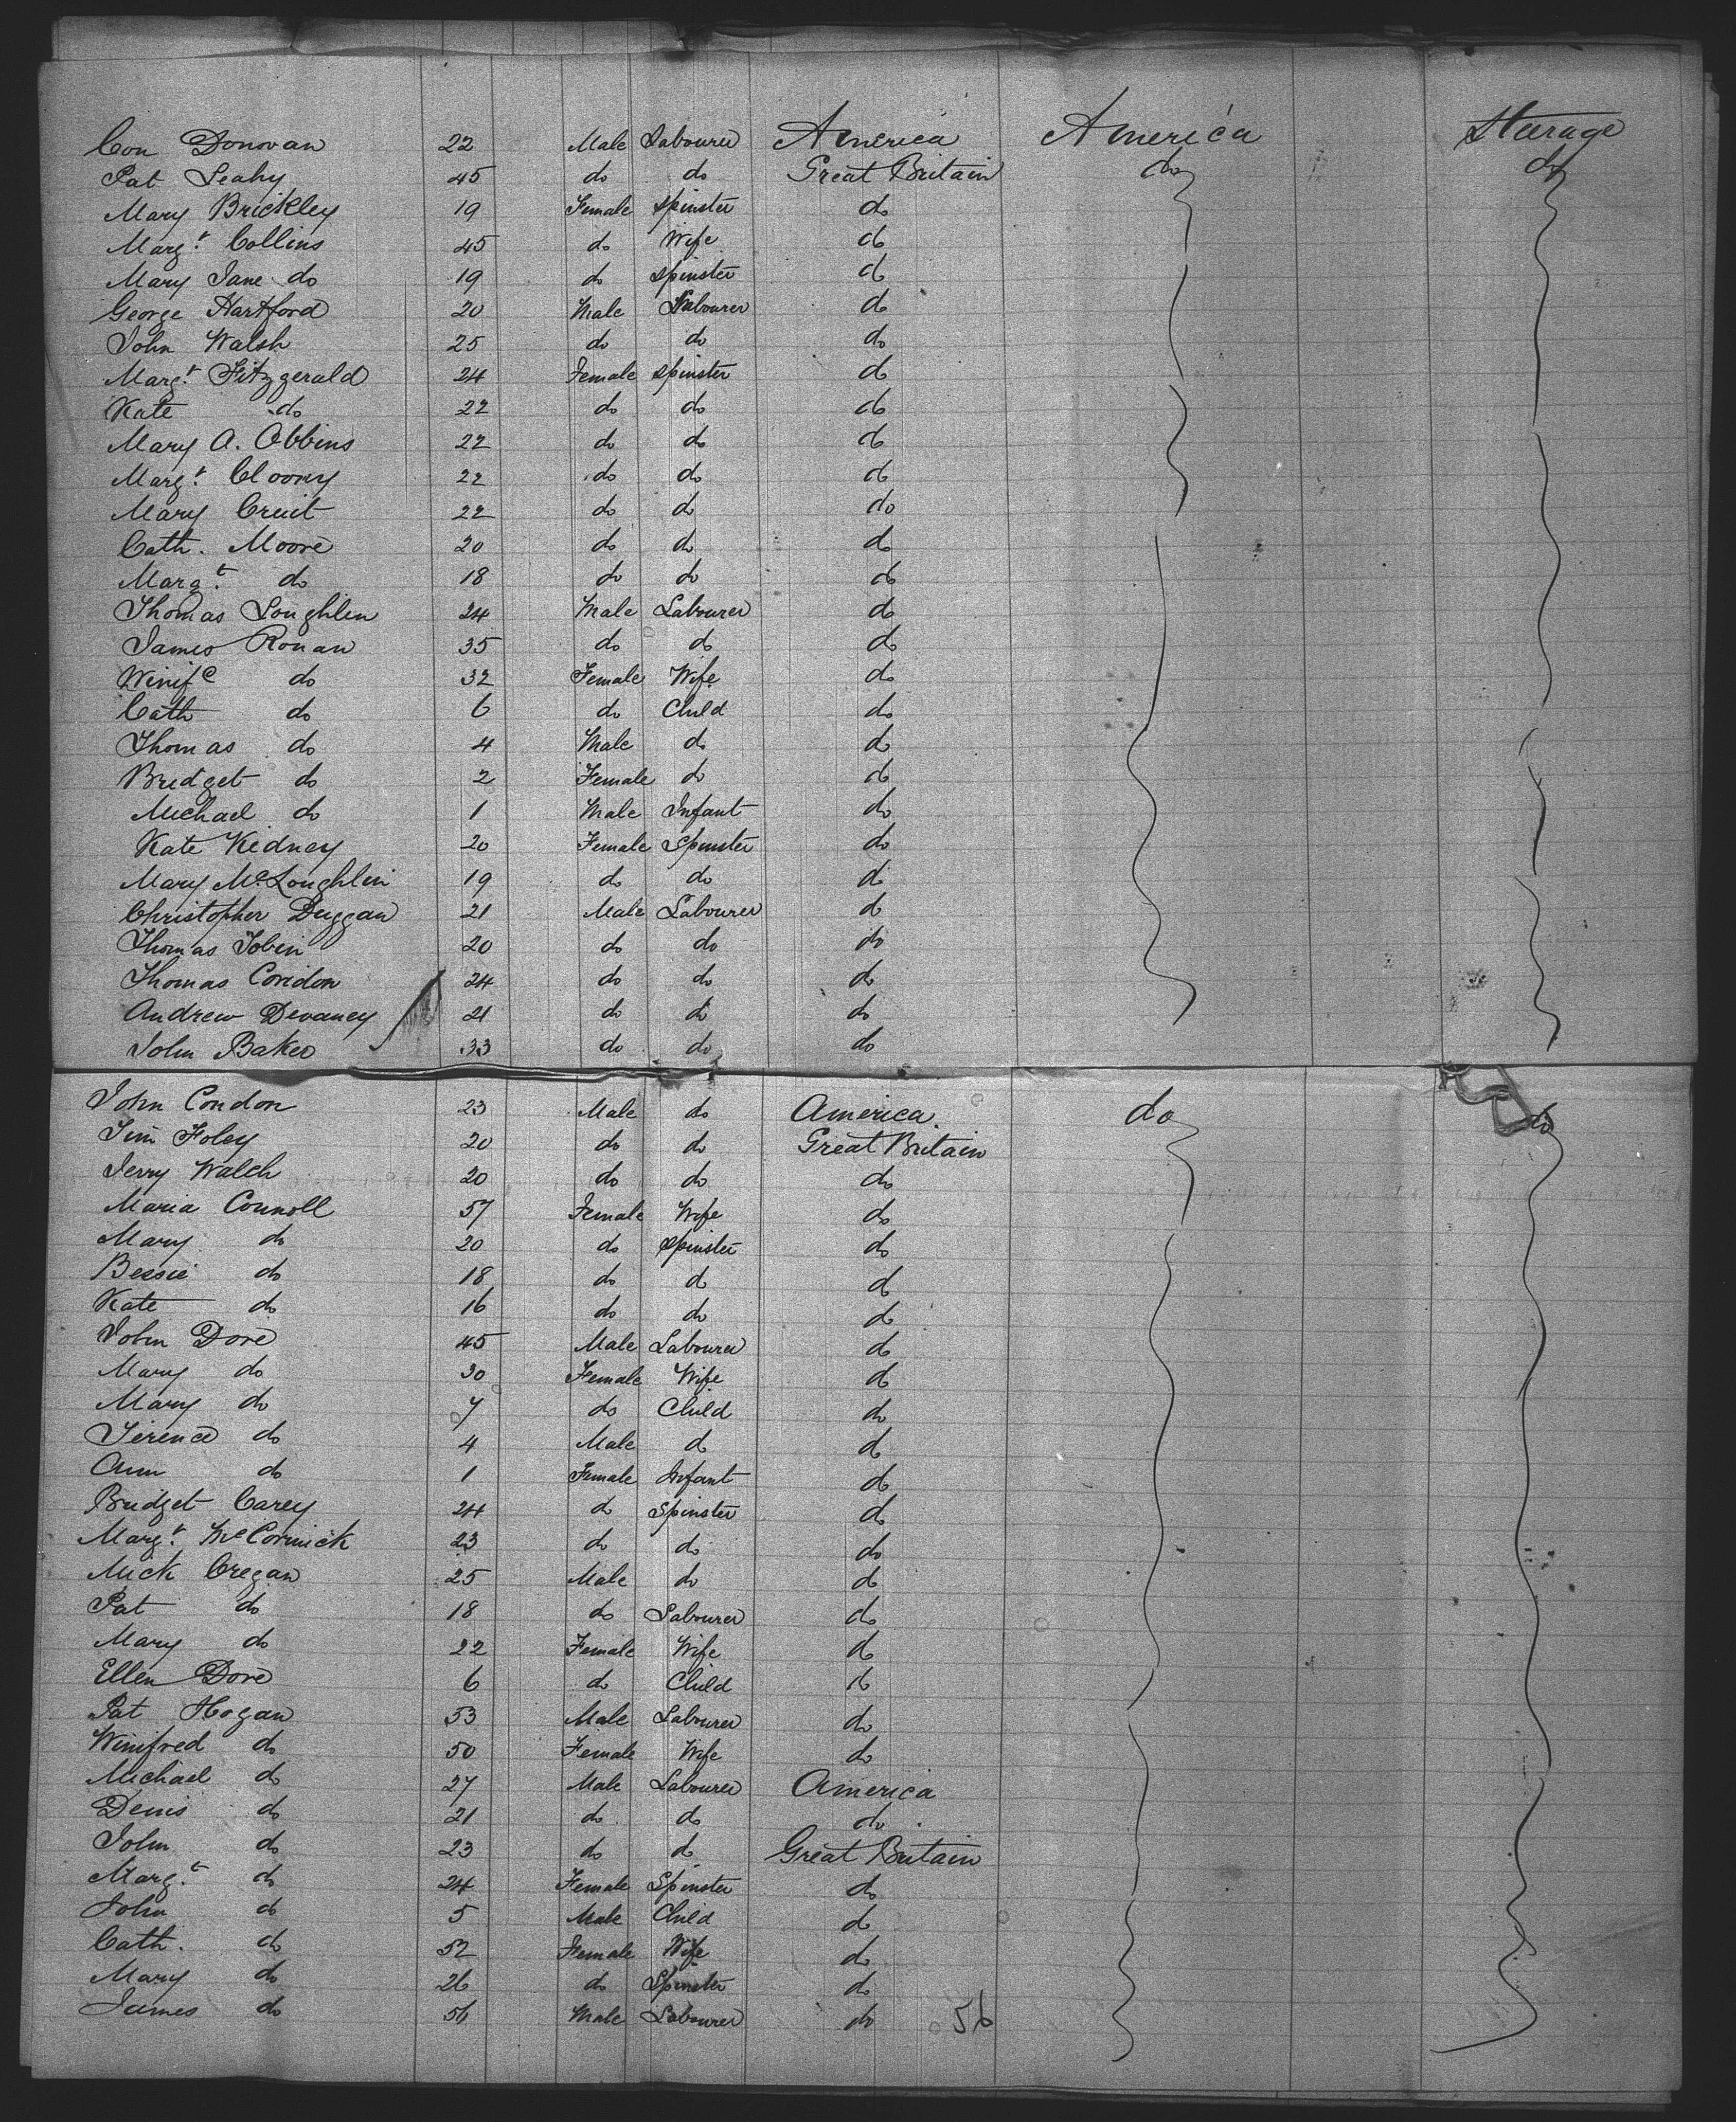 Con Donovan 22 Male Labourer America America Steerage
Pat Leahy 45 do do Great Britain do do
Mary Brickley 19 Female Spinster do
Margt. Collins 45 do Wife do
Mary Jane do 19 do Spinster do
George Hartford 20 Male Labourer do
John Walsh 25 do do do
Margt. Fitzgerald 24 Female Spinster do
Kate do 22 do do do
Mary A. Obbins 22 do do do
Margt. Cloony 22 do do do
Mary Cruit 22 do do do
Cath. Moore 20 do do do
Margt. do 18 do do do
Thomas Loughlin 24 Male Labourer do
James Ronan 35 do do do
Winife do 32 Female Wife do
Cath do 6 do Child do
Thomas do 4 Male do do
Bridget do 2 Female do do
Michael do 1 Male Infant do
Kate Kidney 20 Female Spinster do
Mary McLoughlin 19 do do do
Christopher Duggan 21 Male Labourer do
Thomas Tobin 20 do do do
Thomas Coridon 24 do do do
Andrew Devaney 21 do do do
John Baker 33 do do do
John Condon 23 Male do America. do do
Jim Foley 20 do do Great Britain
Jerry Walch 20 do do do
Maria Connoll 57 Female Wife do
Mary do 20 do Spinster do
Bessie do 18 do do do
Kate do 16 do do do
John Dore 45 Male Labourer do
Mary do 30 Female Wife do
Mary do 7 do Child do
Terence do 4 Male do do
Ann do 1 Female Infant do
Bridget Carey 24 do Spinster do
Margt. McCormick 23 do do do
Mick Cregan 25 Male do do
Pat do 18 do Labourer do
Mary do 22 Female Wife do
Ellen Dore 6 do Child do
Pat Hogan 53 Male Labourer do
Winifred do 50 Female Wife do
Michael do 27 Male Labourer America
Denis do 21 do do do
John do 23 do do Great Britain
Margt. do 24 Female Spinster do
John do 5 Male Child do
Cath. do 52 Female Wife do
Mary do 26 do Spinster do
James do 56 Male Labourer do 56